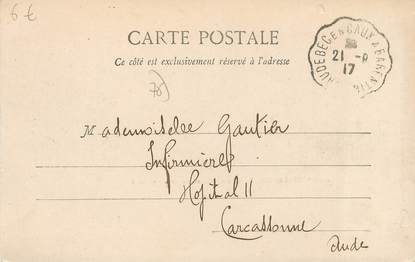 6 €
CARTE POSTALE
Ce côté est exclusivement réservé à l'adresse
CAUDEBEC-EN-CAUX A BARENTIN
21 -8
17
78
Mademoiselle Gautier
Infirmière
Hopital 11
Carcassonne
Aude